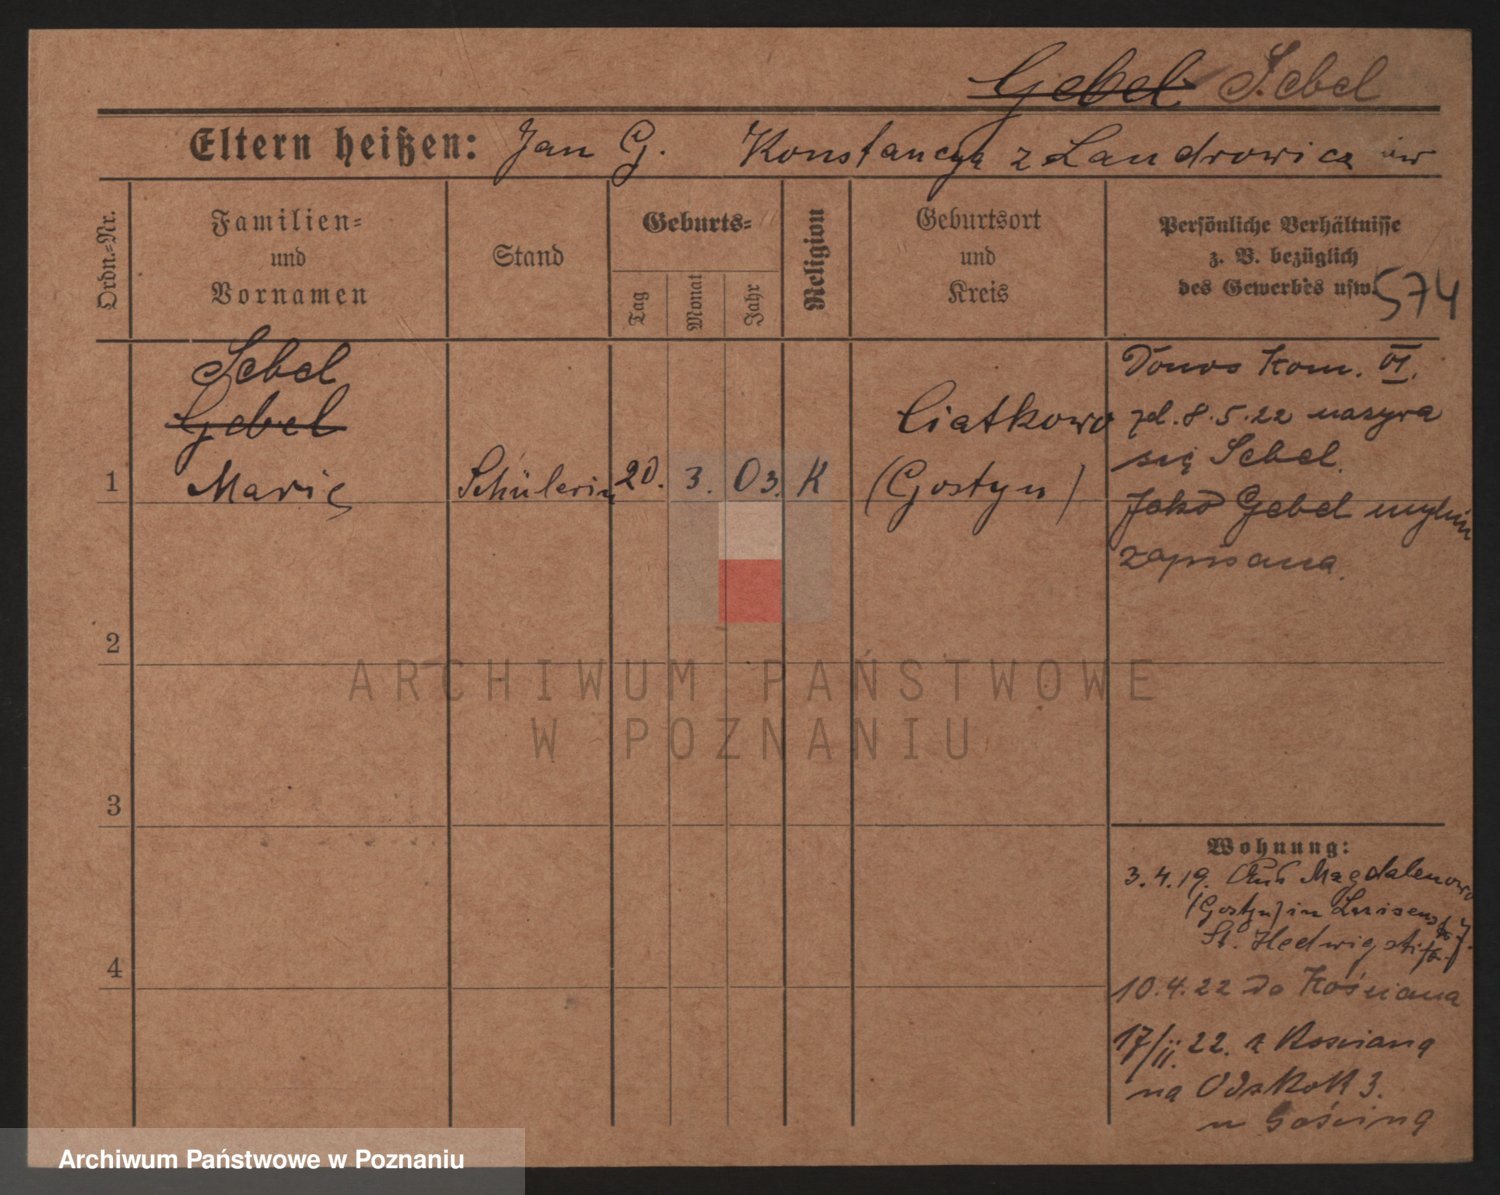 Gebel Sebel
Eltern heißen: Jan G. Konstancya z Landrowicz
Ordn.-Nr.
Familien-
und
Vornamen
Stand
Geburts-
Tag
Monat
Jahr
Religion
Geburtsort
und
Kreis
Persönliche Verhältnisse
z. B. bezüglich
des Gewerbes usw.
574
Sebel
Gebel
1 Marie Schülerin 20. 3. 03. K
Ciatkowo
(Gostyn)
Donos Kom. VI.
zd. 8.5.22 nazywa
się Sebel.
Jako Gebel mylnie
zapisana.
2
3
4
Wohnung:
3.4.19. Aus Magdalenowo
(Gostyn) in Luisenstr.
St. Hedwigstift.
10.4.22 do Kościana
17/II. 22. z Kosciana
na
ARCHIWUM PAŃSTWOWE
W POZNANIU
Archiwum Państwowe w Poznaniu